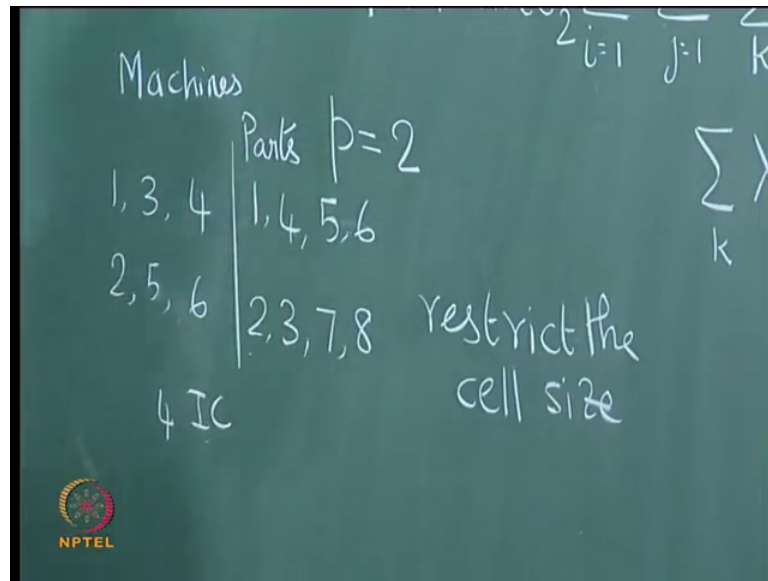 2 i=1 j=1 k
Machines
Parts p=2
1, 3, 4 1, 4, 5, 6
2, 5, 6 2, 3, 7, 8
4 IC
restrict the
cell size
∑ k
NPTEL